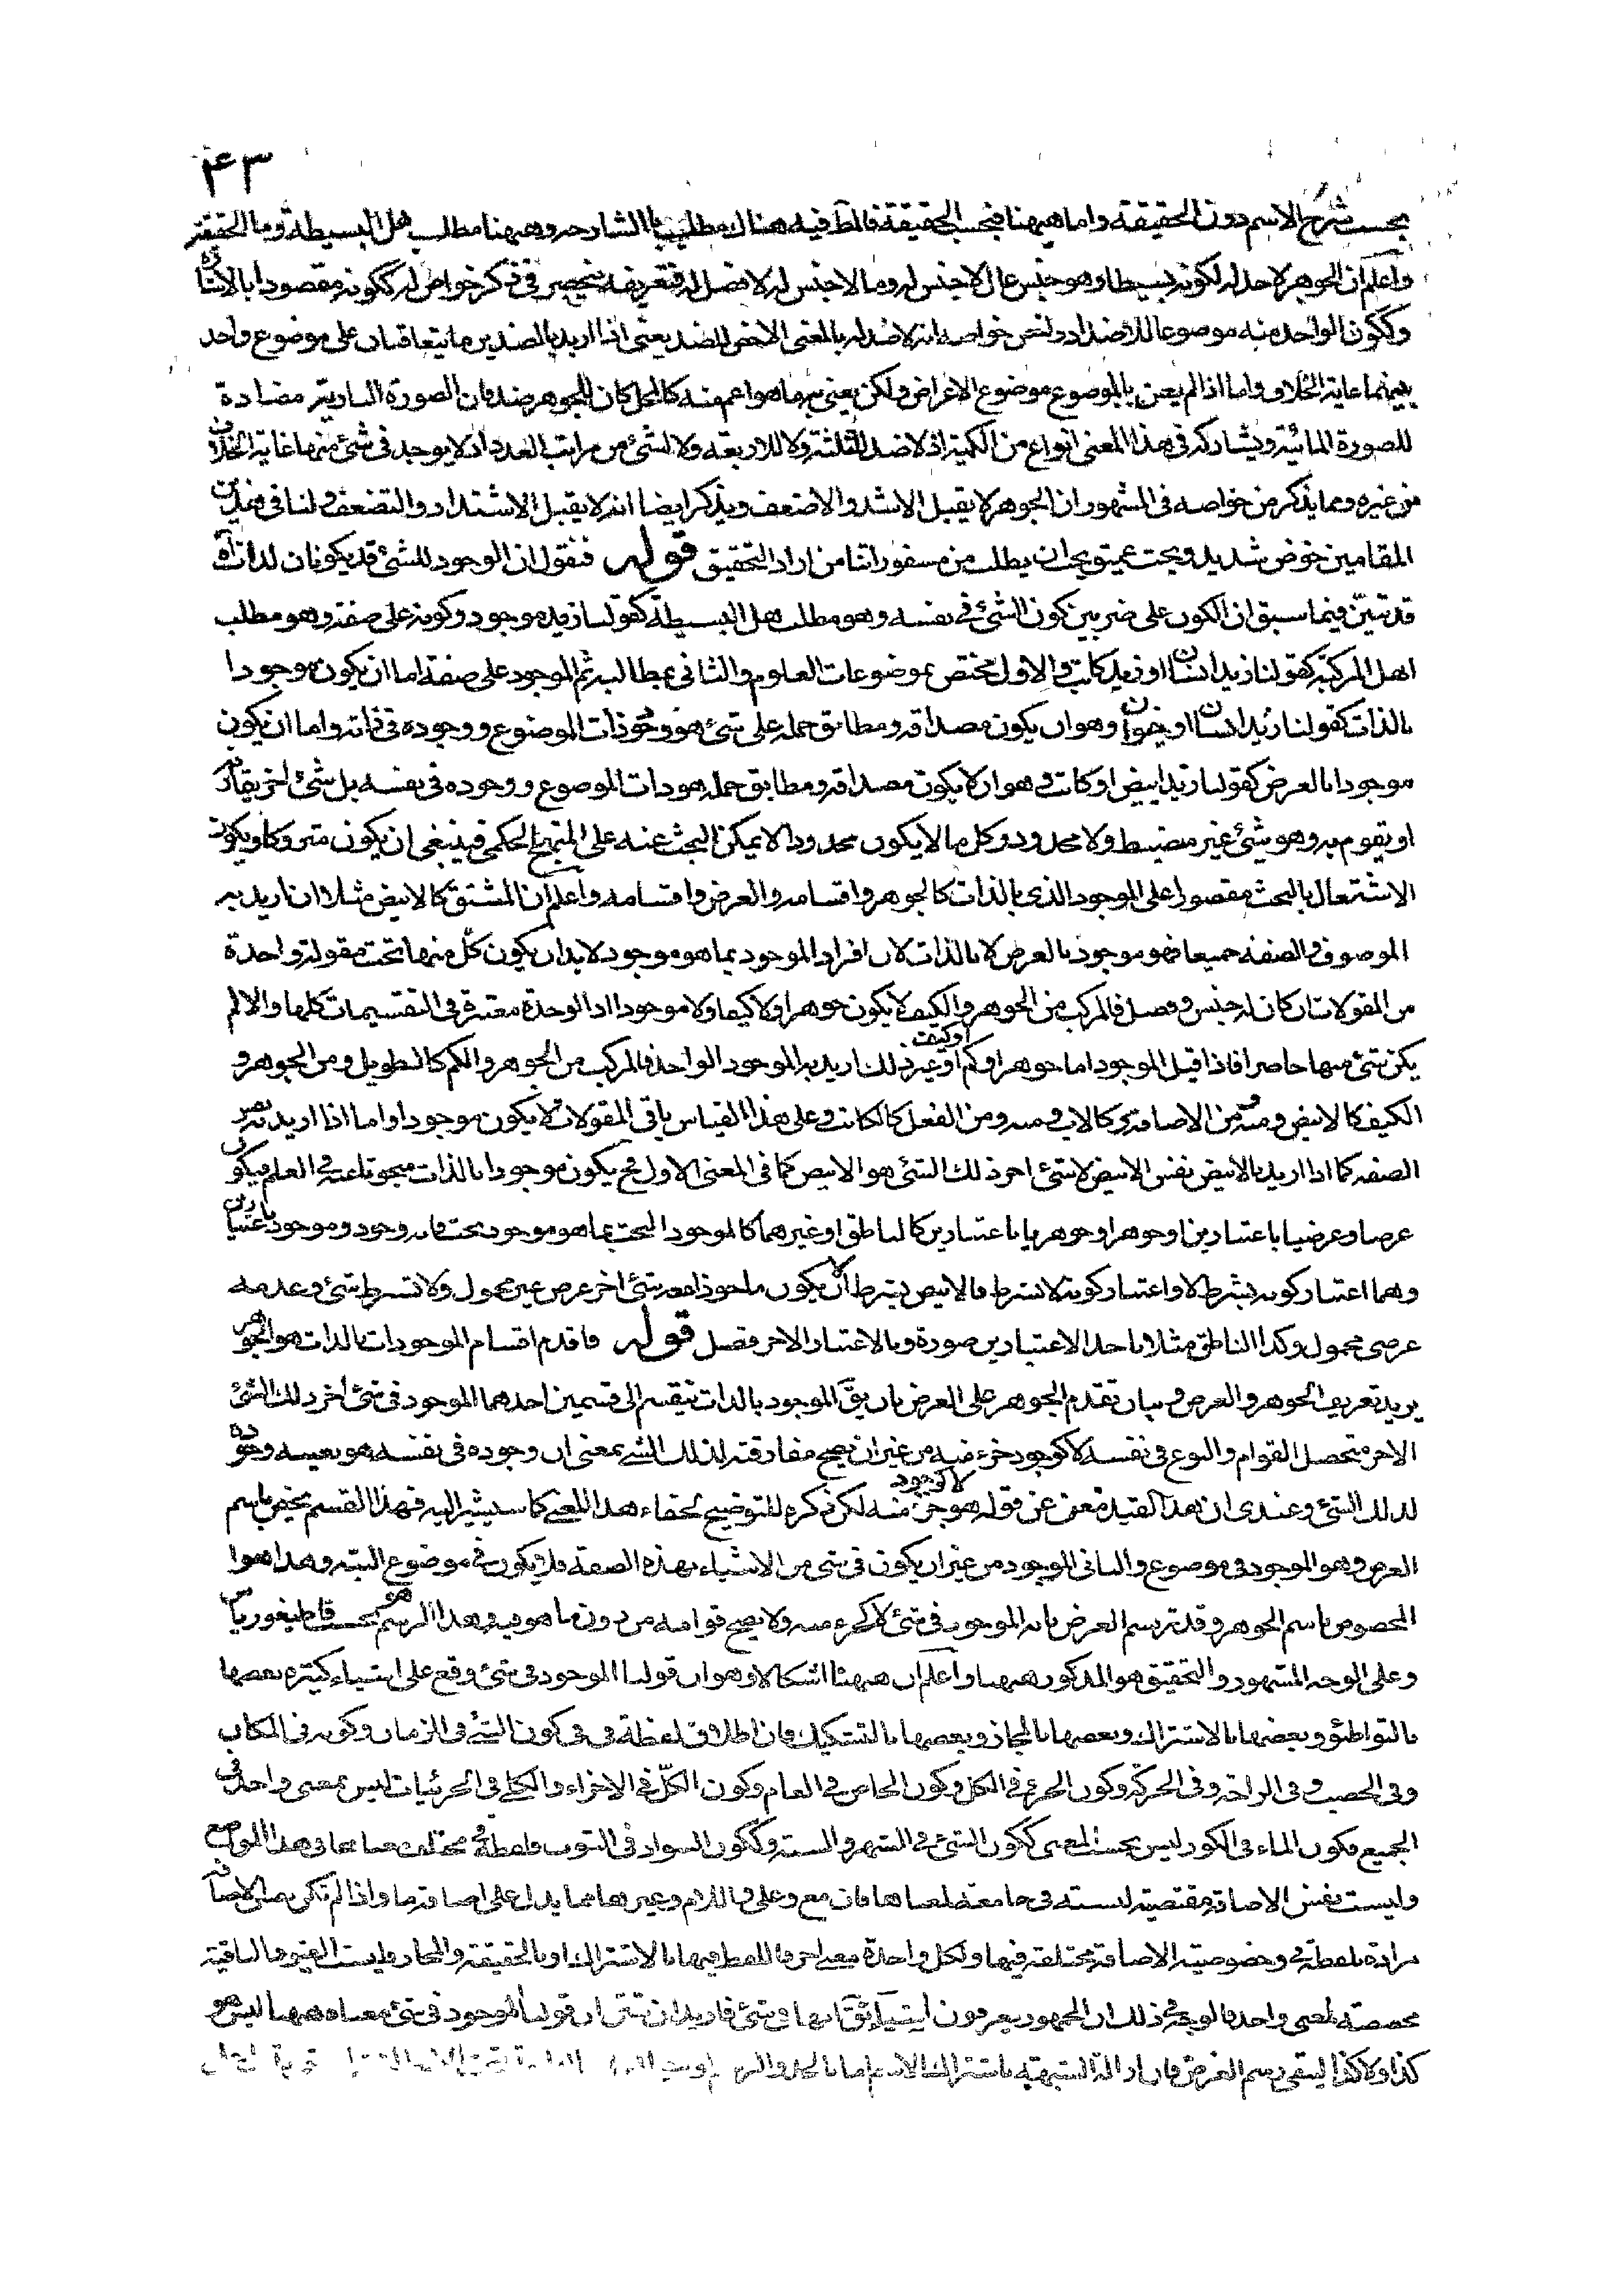 ۴۳
بحسب شرح الاسم دون الحقيقة واما هيهنا فبحسب الحقيقة فالمط فيه هناك مطلب ما الشارحه وهيهنا مطلب هل البسيطة وما الحقيقة
واعلم ان الجوهر لا حد له لكونه بسيطا وهو جنس عال لا جنس له وما لا جنس له لا فصل له فتعريفه منحصر في ذكر خواص له ككونه مقصودا بالاشارة
وككون الواحد منه موضوعا للاضداد ولنحن خواصه انه لا ضد له بالمعنى الاخص للضد يعنى اذا اريد بالضدين ما يتعاقبان على موضوع واحد
بينهما غاية الخلاف واما اذا لم يعن بالموضوع موضوع الاعراض ولكن يعنى به ما هو اعم منه كالمحل كان للجوهر ضد فان الصورة النارية مضادة
للصورة المائية ويشاركه في هذا المعنى انواع من الكمية اذ لا ضد للثلثة ولا للاربعة ولا لشئ من مراتب العدد اذ لا يوجد في شئ منها غاية الخلاف
من غيره ومما يذكر من خواصه في المشهور ان الجوهر لا يقبل الاشد والاضعف ويذكر ايضا انه لا يقبل الاشتداد والتضعف ولنا في هذين
المقامين خوض شديد وبحث عميق يجب ان يطلب من مسفوراتنا من اراد التحقيق قوله فنقول ان الوجود للشئ قد يكون بالذات اه
قد تبين فيما سبق ان الكون على ضربين كون الشئ في نفسه وهو مطلب هل البسيطة كقولنا زيد موجود وكونه على صفة وهو مطلب
اهل المركبة كقولنا زيد انسان او زيد كاتب والاول مختص بموضوعات العلوم والثاني بمطالبه ثم الموجود على صفة اما ان يكون موجودا
بالذات كقولنا زيد انسان او حيوان وهو ان يكون مصداقه ومطابق حمله على شئ هو وجود ذات الموضوع ووجوده في ذاته واما ان يكون
موجودا بالعرض كقولنا زيد ابيض او كاتب وهو ان لا يكون مصداقه ومطابق حمله هو ذات الموضوع ووجوده في نفسه بل شئ اخر يقارنه
او يقوم به وهو شئ غير منضبط ولا محدود وكل ما لا يكون محدودا لا يمكن البحث عنه على المنهج الحكمي فينبغي ان يكون متروكا ويكون
الاشتغال بالبحث مقصورا على الموجود الذى بالذات كالجوهر واقسامه والعرض واقسامه واعلم ان المشتق كالابيض مثلا ان اريد به
الموصوف والصفة جميعا فهو موجود بالعرض لا بالذات لان افراد الموجود بما هو موجود لا بد ان يكون كل منها تحت مقولة واحدة
من المقولات ان كان له جنس وفصل فالمركب من الجوهر والكيف لا يكون جوهرا ولا كيفا ولا موجودا اذ الوحدة معتبرة في التقسيمات كلها والا لم
يكن شئ منها حاصرا فاذا قيل الموجود اما جوهر او كم او كيف او غير ذلك اريد به الموجود الواحد فالمركب من الجوهر والكم كالطويل ومن الجوهر و
الكيف كالابيض ومنه ومن الاضافة كالاب ومنه ومن الفعل كالكاتب وعلى هذا القياس باقي المقولات لا يكون موجودا واما اذا اريد به نفس
الصفة كما اذا اريد بالابيض نفس الابيض لا شئ اخر ذلك الشئ هو الابيض كما في المعنى الاول فح يكون موجودا بالذات مبحوثا عنه في العلم فيكون
عرضا وعرضيا باعتبارين او جوهرا وجوهريا باعتبارين كالناطق او غيرهما كالموجود البحت بما هو موجود بحت فانه وجود وموجود باعتبارين
وهما اعتبار كونه بشرط لا واعتبار كونه لا بشرط فالابيض بشرط ان لا يكون ماخوذا معه شئ اخر عرض غير محمول ولا بشرط شئ وعدمه
عرضى محمول وكذا الناطق مثلا باحد الاعتبارين صورة وبالاعتبار الاخر فصل قوله فاقدم اقسام الموجودات بالذات هو الجوهر
يريد تعريف الجوهر والعرض وبيان تقدم الجوهر على العرض بان يق الموجود بالذات ينقسم الى قسمين احدهما الموجود في شئ اخر ذلك الشئ
الاخر متحصل القوام والنوع في نفسه لا كوجود جزء فيه من غير ان يصح مفارقته لذلك الشئ بمعنى ان وجوده في نفسه هو بعينه وجوده
لذلك الشئ وعندى ان هذا القيد مغن عن قوله لا كوجود هو جزء منه لكن ذكره للتوضيح لخفاء هذا المعنى كما سيشير اليه فهذا القسم يختص باسم
العرض وهو الموجود في موضوع والثاني الموجود من غير ان يكون في شئ من الاشياء بهذه الصفة فلا يكون في موضوع البته وهذا هو ا
المخصوص باسم الجوهر وقد ترسم العرض بانه الموجود في شئ لا كجزء منه ولا يصح قوامه من دون ما هو فيه وهذا الرسم هو بحسب قاطيغورياس
وعلى الوجه المشهور والتحقيق هو المذكور هيهنا واعلم ان هيهنا اشكالا وهو ان قولنا الموجود في شئ وقع على اشياء كثيرة بعضها
بالتواطئ وبعضها بالاشتراك وبعضها بالمجاز وبعضها بالتشكيك فان اطلاق لفظة في في كون الشئ في الزمان وكونه في المكان
وفي الخصب وفي الراحة وفي الحركة وكون الجزء في الكل وكون الخاص في العام وكون الكل في الاجزاء والكلى في الجزئيات ليس بمعنى واحد في
الجميع فكون الماء في الكوز ليس بحسب المعنى ككون الشئ في الشهر والسنة وككون السواد في الثوب فلفظة في مختلف معناها في هذا المواضع
وليست نفس الاضافة مقتضية لنسبته في جامعة لمعناها فان مع وعلى واللام وغيرها مما يدل على اضافة ما واذا لم تكن معنى الاضافة
مرادة بلفظة في وخصوصية الاضافة مختلفة فيها ولكل واحدة معنى اخر فاللفظ فيها بالاشتراك او بالحقيقة والمجاز وليست القيود الباقية
مخصصة لمعنى واحد فالوجه في ذلك ان الجمهور يعرفون اشياء يق انها في شئ فاريد ان يبين ان قولنا الموجود في شئ معناه هيهنا ليس هو
كذا ولا كذا ليبقى رسم العرض فان ازالة الشبهة باشتراك الاسم اما بالحد والرسم